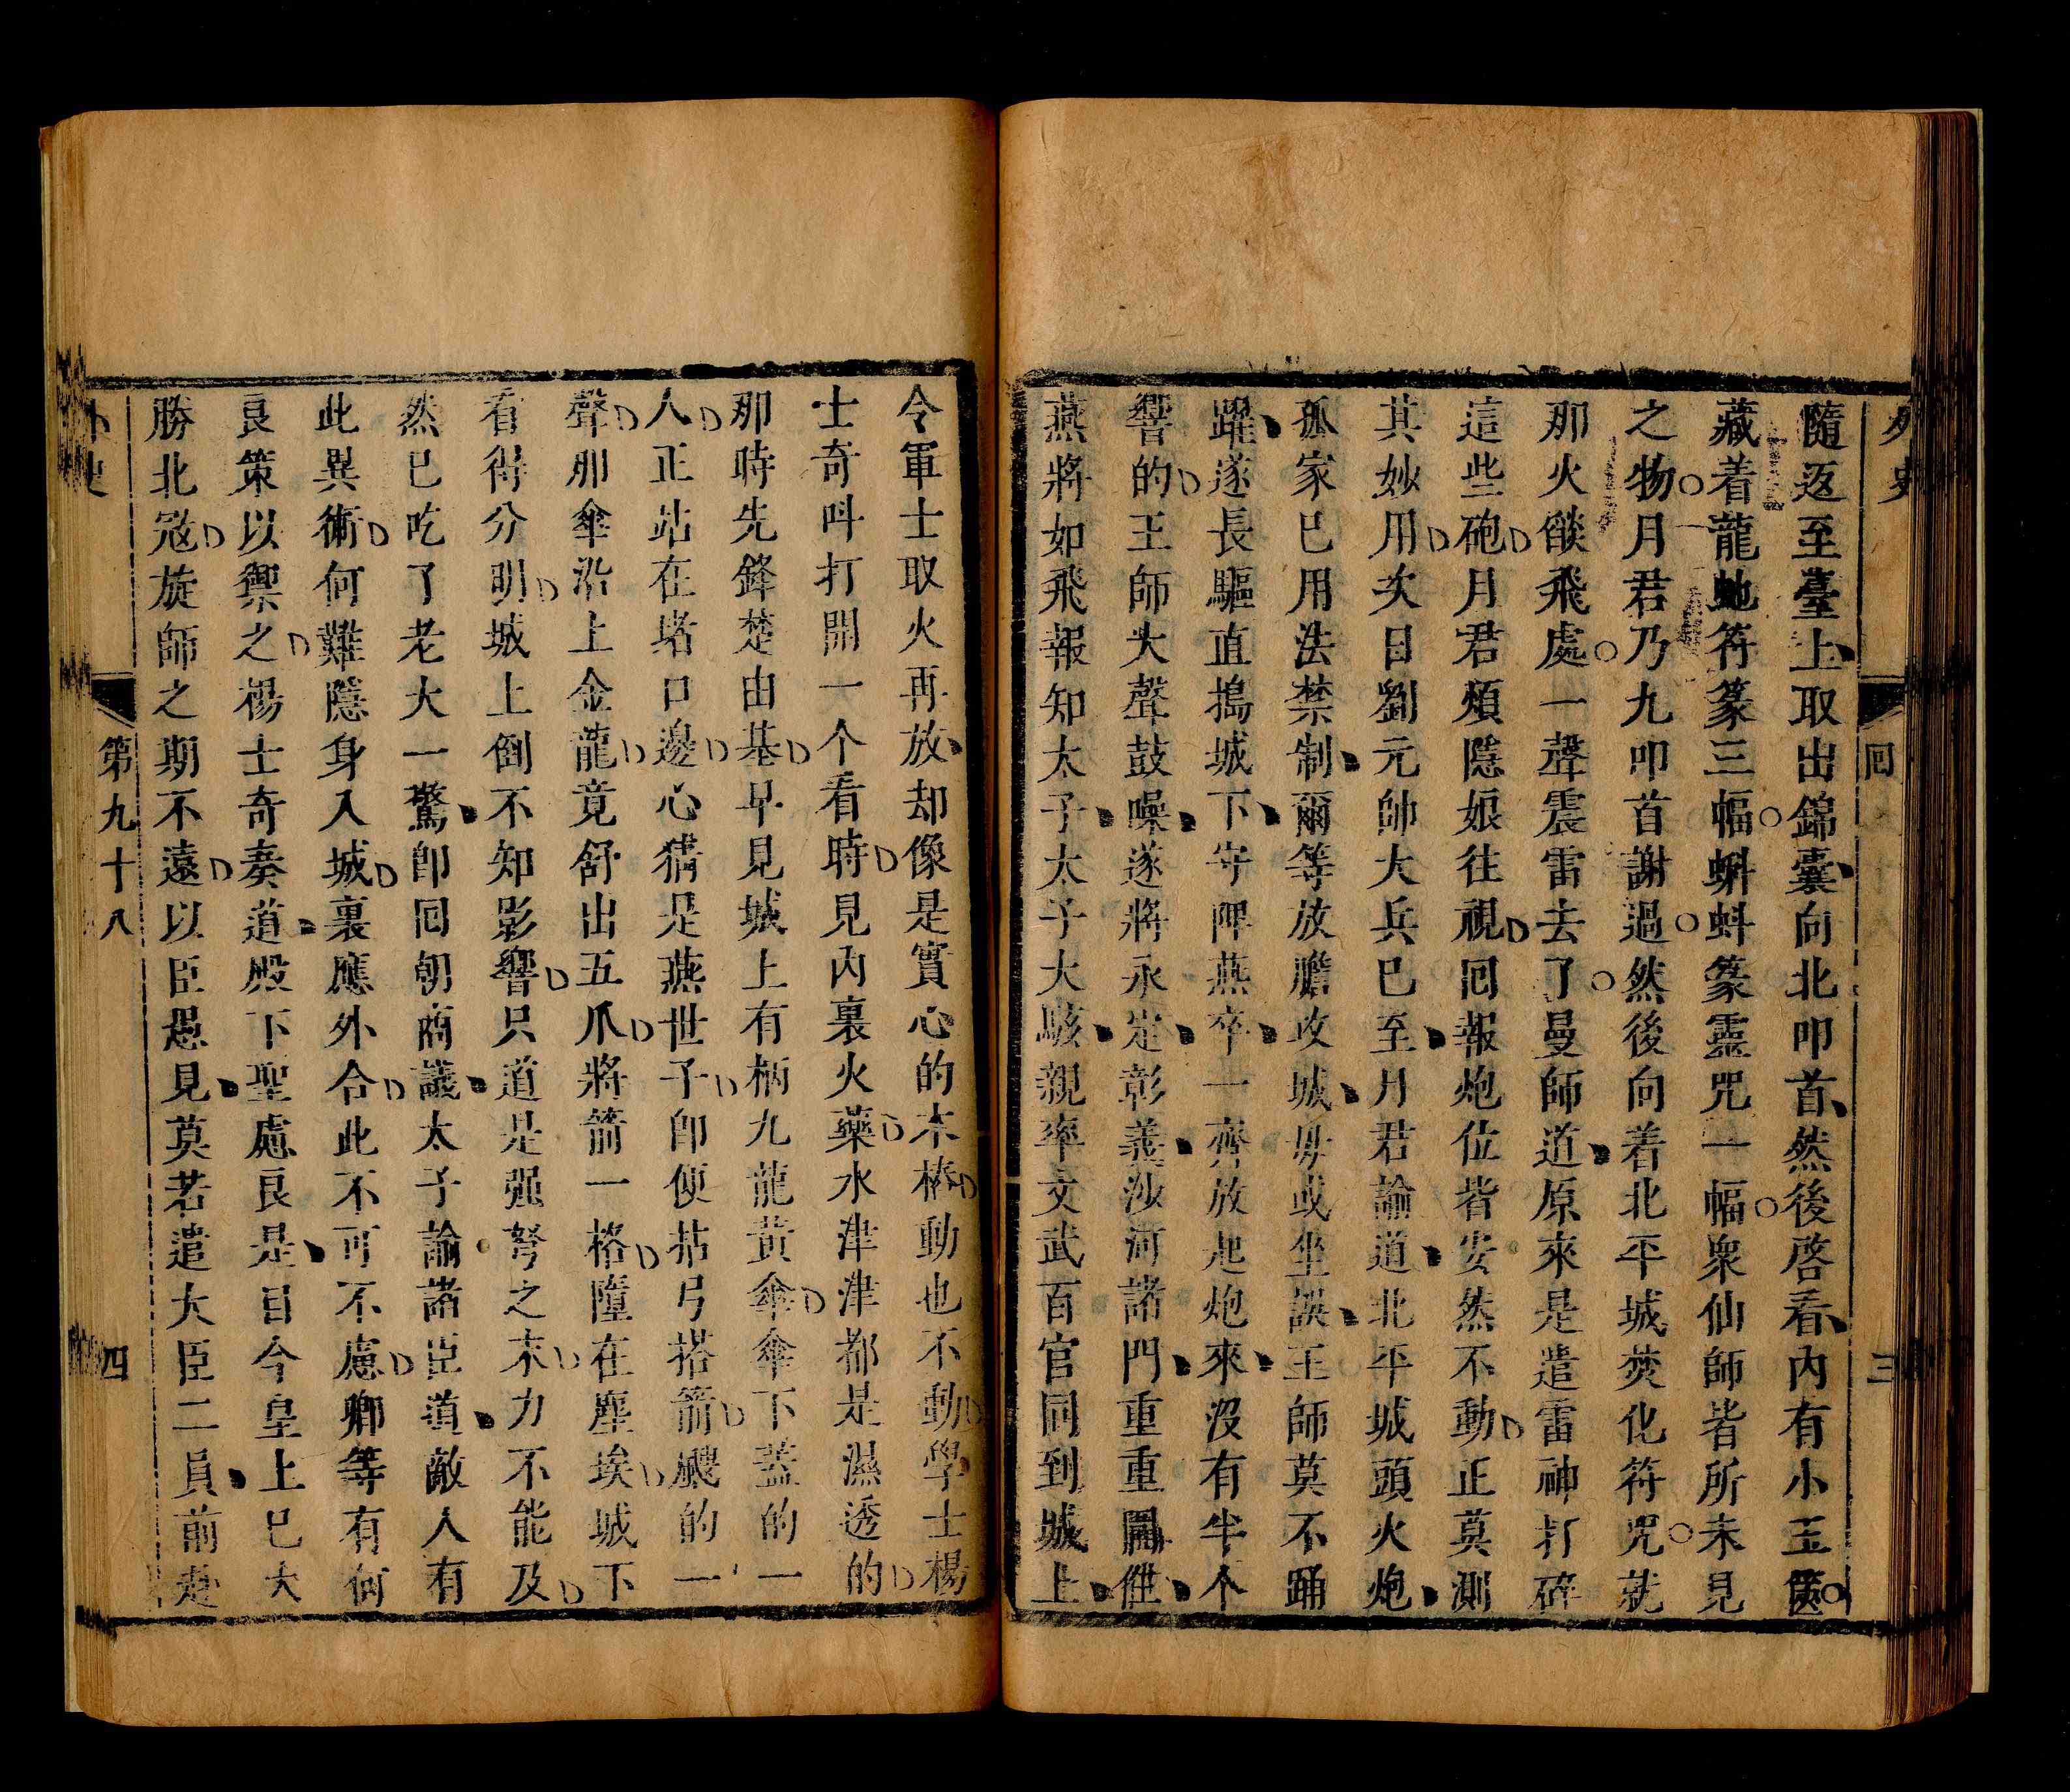 外史
回
三
隨返至臺上取出錦囊向北叩首然後啓看內有小玉篋
藏着龍虵符篆三幅蝌蚪篆靈咒一幅衆仙師皆所未見
之物月君乃九叩首謝過然後向着北平城焚化符咒就
那火燄飛處一聲震雷去了曼師道原來是遣雷神打碎
這些砲月君煩隱娘往視囘報炮位皆安然不動正莫測
其妙用次日劉元帥大兵已至月君諭道北平城頭火炮
孤家已用法禁制爾等放膽攻城毋或坐誤王師莫不踊
躍遂長驅直搗城下守陴燕卒一齊放起炮來沒有半个
響的王師大聲鼓噪遂將永定彰義沙河諸門重重圍住
燕將如飛報知太子太子大駭親率文武百官同到城上
令軍士取火再放却像是實心的木樁動也不動學士楊
士奇呌打開一个看時見內裏火藥水津津都是濕透的
那時先鋒楚由基早見城上有柄九龍黃傘傘下蓋的一
人正站在堵口邊心猜是燕世子卽便拈弓搭箭颼的一
聲那傘沿上金龍竟舒出五爪將箭一格墮在塵埃城下
看得分明城上倒不知影響只道是强弩之末力不能及
然已吃了老大一驚卽囘朝商議太子諭諸臣道敵人有
此異術何難隱身入城裏應外合此不可不慮卿等有何
良策以禦之楊士奇奏道殿下聖慮良是目今皇上已大
勝北寇旋師之期不遠以臣愚見莫若遣大臣二員前赴
外史
第九十八
四